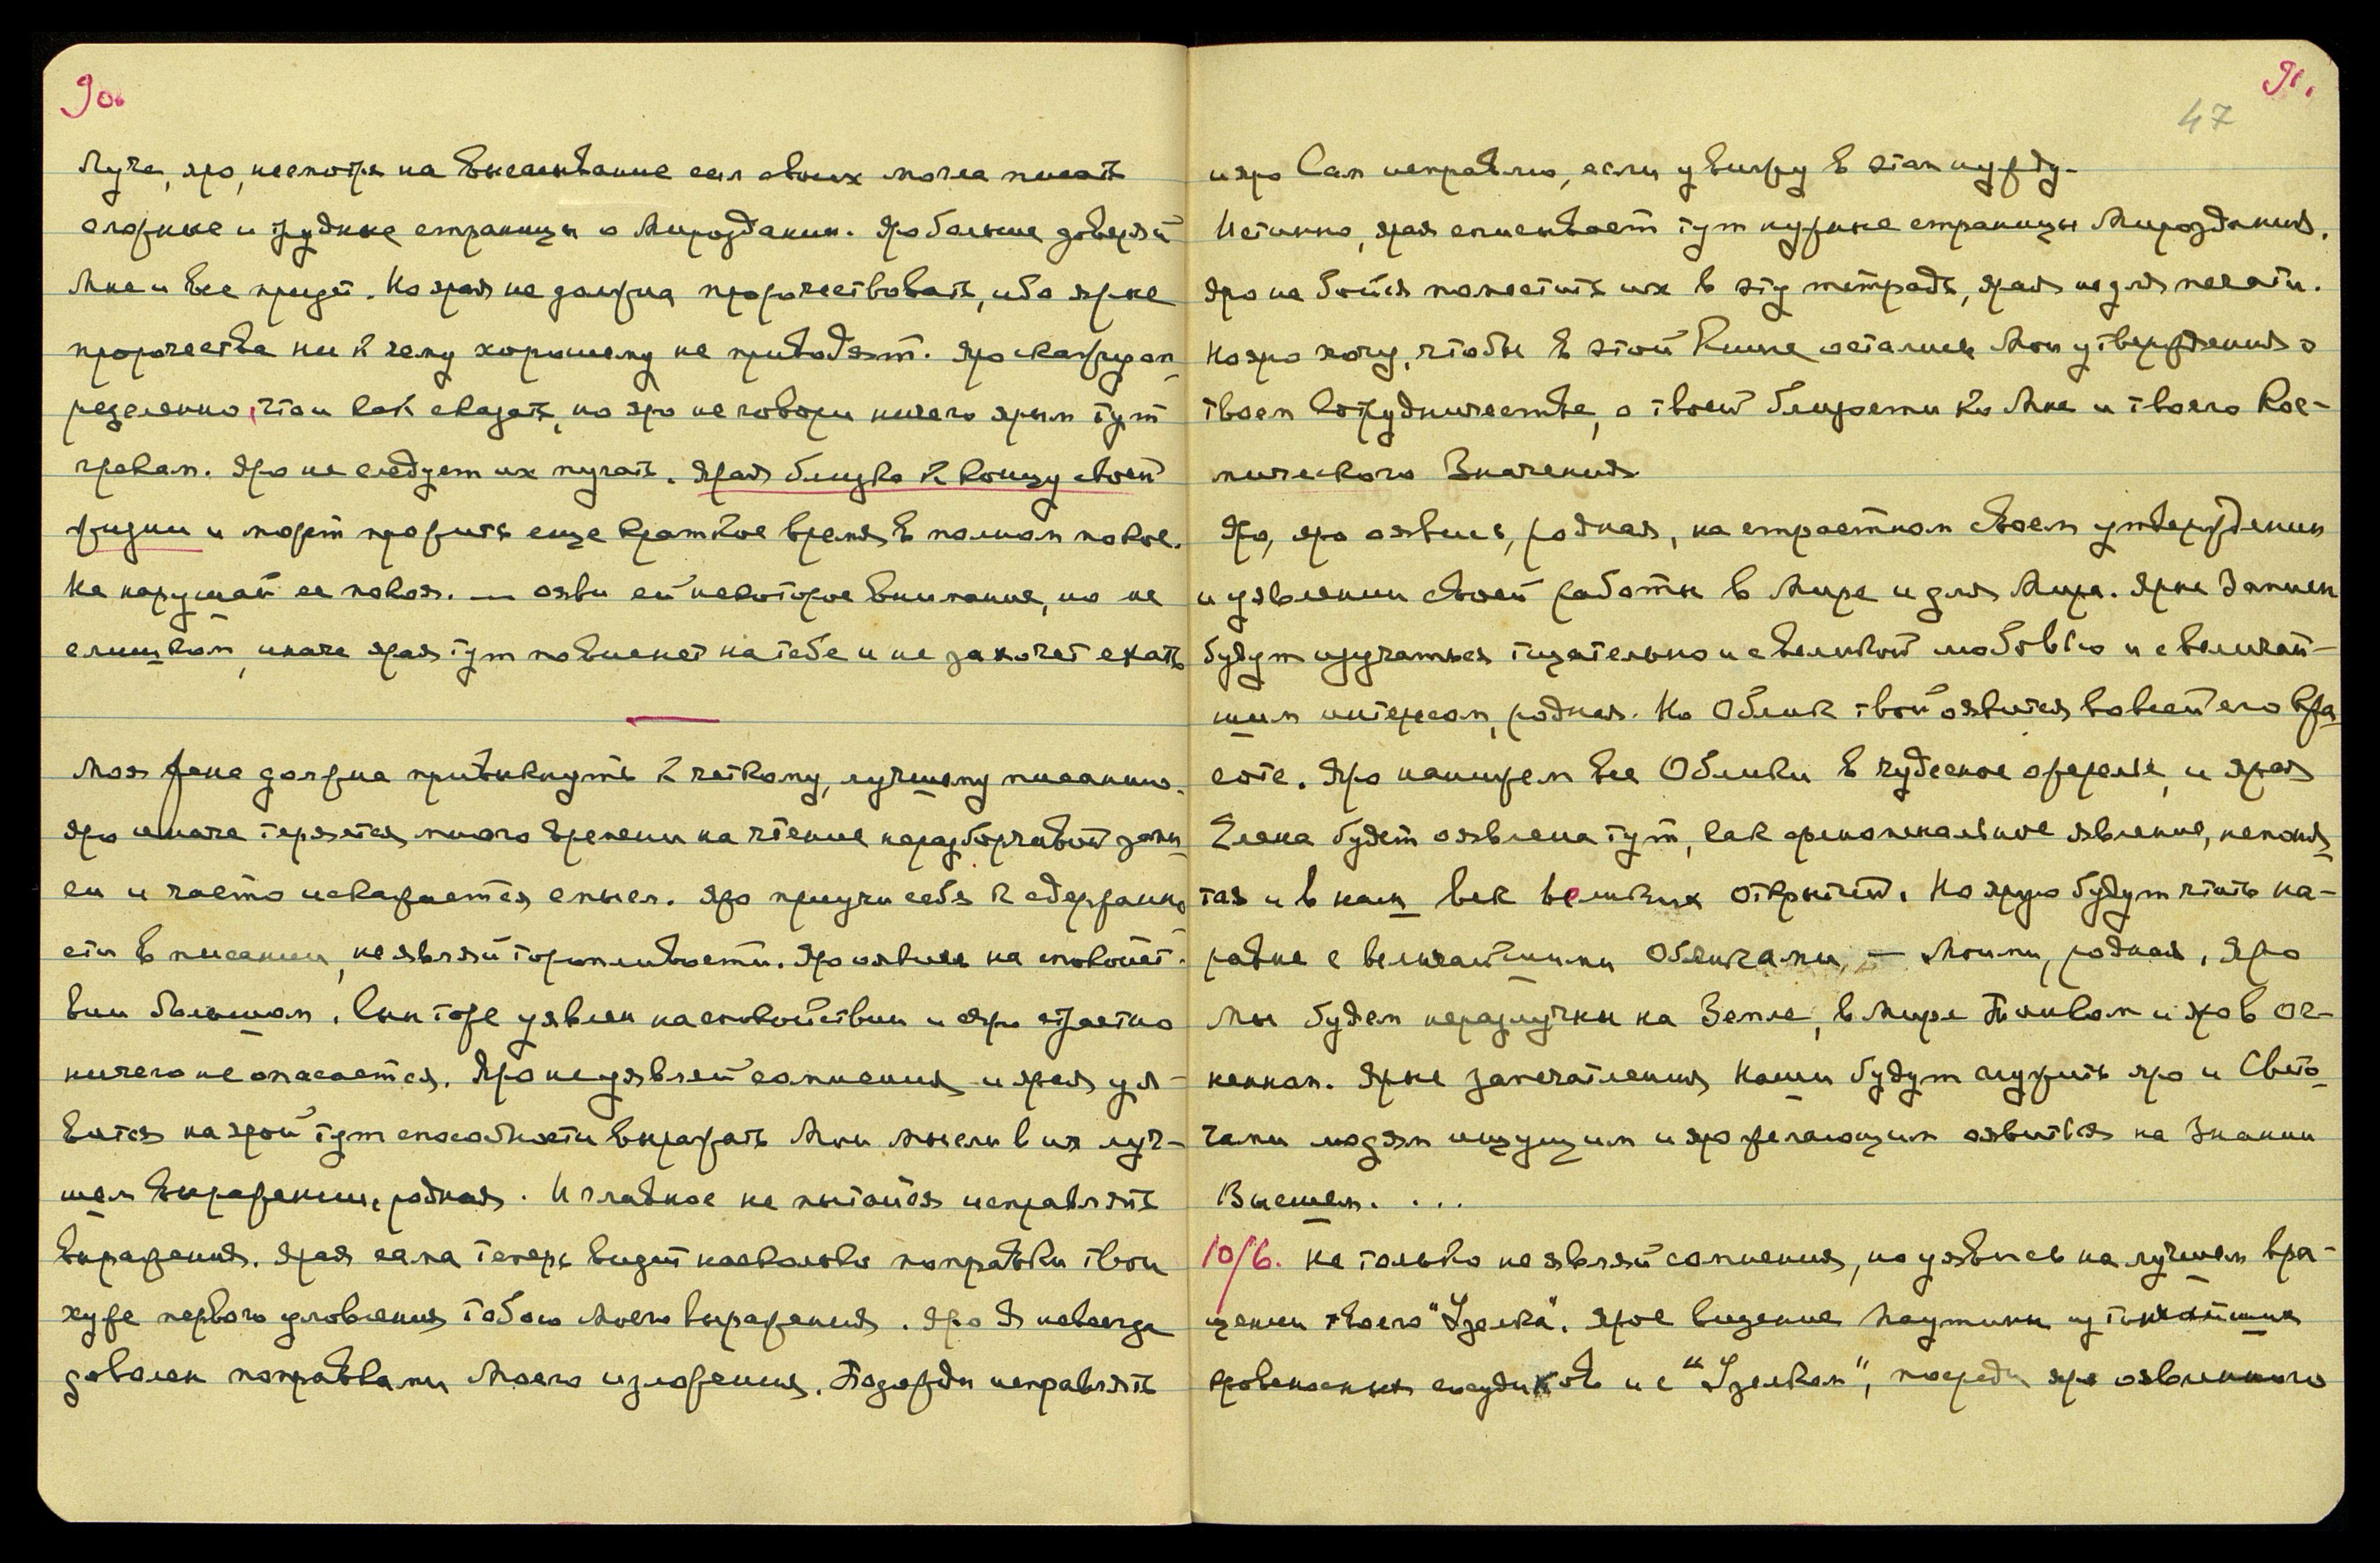 90.
Луча, яро, несмотря на высасывание сил своих могла писать
сложные и трудные страницы о Мироздании. Яро больше доверяй
Мне и все придет. Но ярая не должна пророчествовать, ибо ярые
пророчества ни к чему хорошему не приводят. Яро скажу оп-
ределенно, что и как сказать, но яро не говори ничего ярым тут
грекам. Яро не следует их пугать. Ярая близко к концу своей
жизни и может прожить еще краткое время в полном покое.
Не нарушай ее покоя. — ояви ей некоторое внимание, но не
слишком, иначе ярая тут повиснет на тебе и не захочет ехать
Моя Жена должна привыкнуть к четкому, лучшему писанию.
Яро иначе теряется много времени на чтение неразборчивой запи-
си и часто искажается смысл. Яро приучи себя к сдержанно-
сти в писании, не являй торопливости. Яро оявись на спокойст-
вии большом. Сын тоже уявлен на спокойствии и яро страстно
ничего не опасается. Яро не уявляй сомнения и ярая уя-
вится на ярой тут способности выражать Мои мысли в их луч-
шем выражении, родная. И главное не пытайся исправлять
выражения. Ярая сама теперь видит насколько поправки твои
хуже первого уловления тобою Моего выражения. Яро Я не всегда
доволен поправками Моего изложения. Подожди исправлять
91.
47
и яро Сам исправлю, если увижу в этом нужду.
Истинно, ярая списывает тут нужные страницы Мироздания.
Яро не бойся поместить их в эту тетрадь, ярая не для печати.
Но яро хочу, чтобы в этой Книге остались Мои утверждения о
твоем Сотрудничестве, о твоей близости ко Мне и твоего Кос-
мического Значения
Яро, яро оявись, родная, на страстном своем утверждении
и уявлении своей работы в Мире и для Мира. Ярые Записи
будут изучаться тщательно и с великой любовью и с величай-
шим интересом, родная. Но Облик твой оявится во всей его кра-
соте. Яро нанижем все Облики в чудесное ожерелье, и ярая
Елена будет оявлена тут, как феноменальное явление, непоня-
тая и в наш век великих открытий. Но ярую будут чтить на-
равне с величайшими Обликами, — Моими, родная. Яро
Мы будем неразлучны на Земле, в Мире Тонком и яро в Ог-
ненном. Ярые запечатления Наши будут служить яро и Свето-
чами людям ищущим и яро желающим оявиться на Знании
Высшем. . . .
10/6. Не только не являй сомнения, но уявись на лучшем вра-
щении твоего "Узелка". Ярое видение паутины из тончайших
кровеносных сосудиков и с "Узелком", посреди яро оявленного